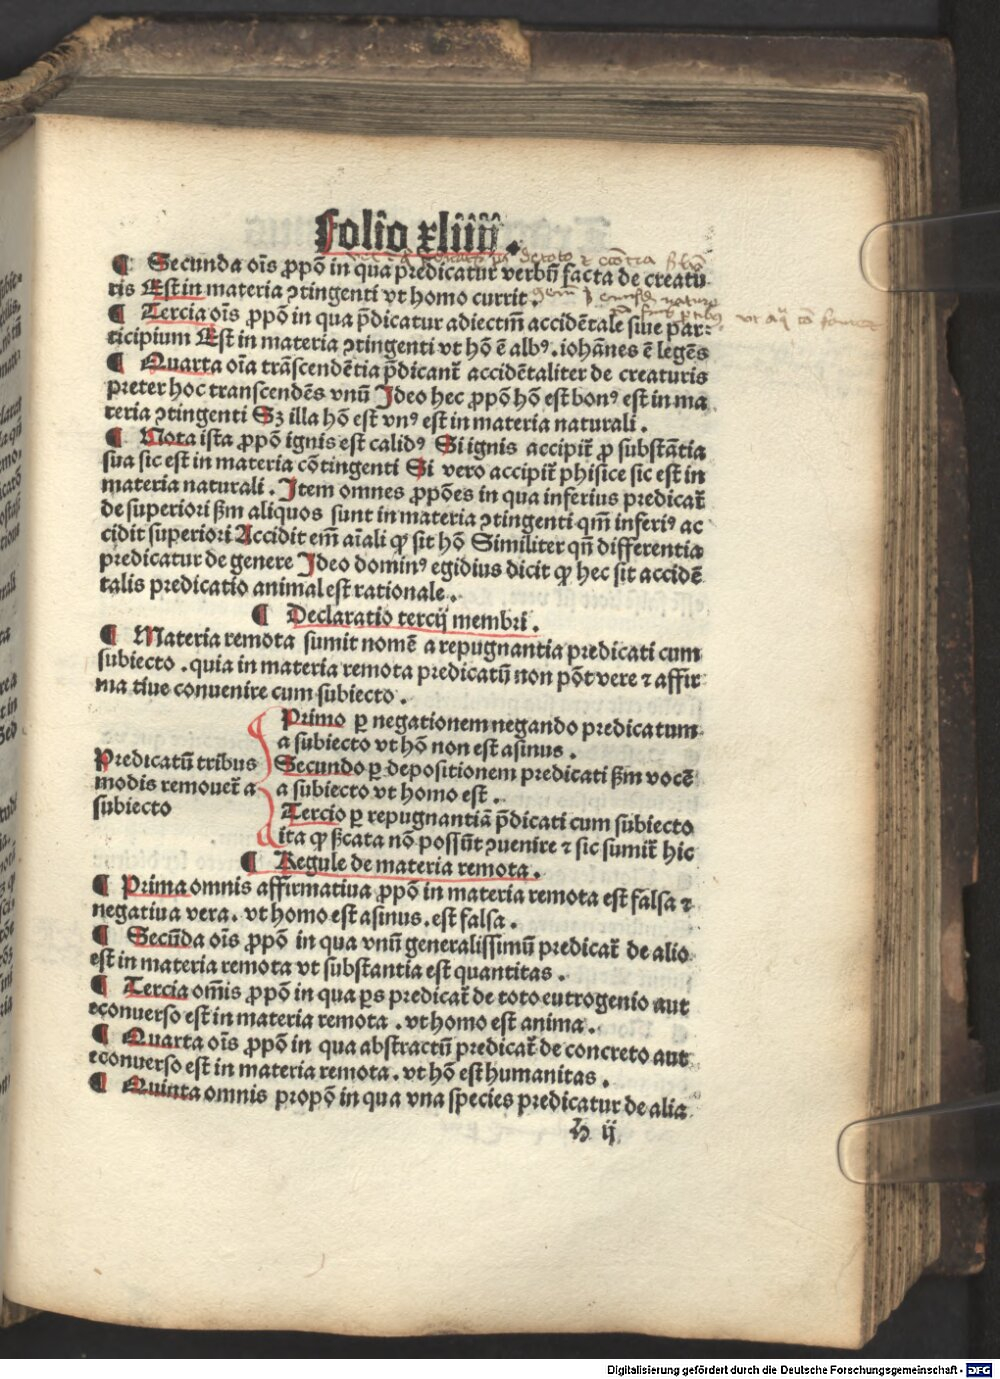 Folio xliiij.
¶ Secunda oīs ꝓpō in qua predicatur verbū facta de creatu
ris Est in materia ꝯtingenti vt homo currit.
¶ Tercia oīs ꝓpō in qua p̄dicatur adiectm̄ accidētale siue par-
ticipium Est in materia ꝯtingenti vt hō ē albꝰ. iohānes ē legēs
¶ Quarta oīa trāscendētia p̄dicant᷑ accidētaliter de creaturis
preter hoc transcendēs vnū Ideo hec ꝓpō hō est bonꝰ est in ma
teria ꝯtingenti Sꝫ illa hō est vnꝰ est in materia naturali.
¶ Nota ista ꝓpō ignis est calidꝰ Si ignis accipit᷑ ꝓ substātia
sua sic est in materia cōtingenti Si vero accipit᷑ phisice sic est in
materia naturali. Item omnes ꝓpōes in qua inferius predicat᷑
de superiori ẜm aliquos sunt in materia ꝯtingenti qm̄ inferiꝰ ac
cidit superiori Accidit em̄ aīali ꝙ sit hō Similiter qn̄ differentia
predicatur de genere Ideo dominꝰ egidius dicit ꝙ hec sit accidē
talis predicatio animal est rationale.
¶ Declaratio tercij membri.
¶ Materia remota sumit nomē a repugnantia predicati cum
subiecto. quia in materia remota predicatū non pōt vere ⁊ affir-
ma tiue convenire cum subiecto.
Predicatū tribus
modis remouet᷑ a
subiecto
Primo ꝑ negationem negando predicatum
a subiecto vt hō non est asinus.
Secundo ꝑ depositionem predicati ẜm vocē
a subiecto vt homo est.
Tercio ꝑ repugnantiā p̄dicati cum subiecto
ita ꝙ ẜcata nō possūt ꝯuenire ⁊ sic sumit᷑ hic
¶ Regule de materia remota.
¶ Prima omnis affirmatiua ꝓpō in materia remota est falsa ⁊
negatiua vera. vt homo est asinus. est falsa.
¶ Secūda oīs ꝓpō in qua vnū generalissimū predicat᷑ de alio
est in materia remota vt substantia est quantitas.
¶ Tercia om̄is ꝓpō in qua ꝑs predicat᷑ de toto eutrogenio aut
econuerso est in materia remota. vt homo est anima.
¶ Quarta oīs ꝓpō in qua abstractū predicat᷑ de concreto aut
econuerso est in materia remota. vt hō est humanitas.
¶ Quinta omnis propō in qua vna species predicatur de alia
h ij
Digitalisierung gefördert durch die Deutsche Forschungsgemeinschaft - DFG